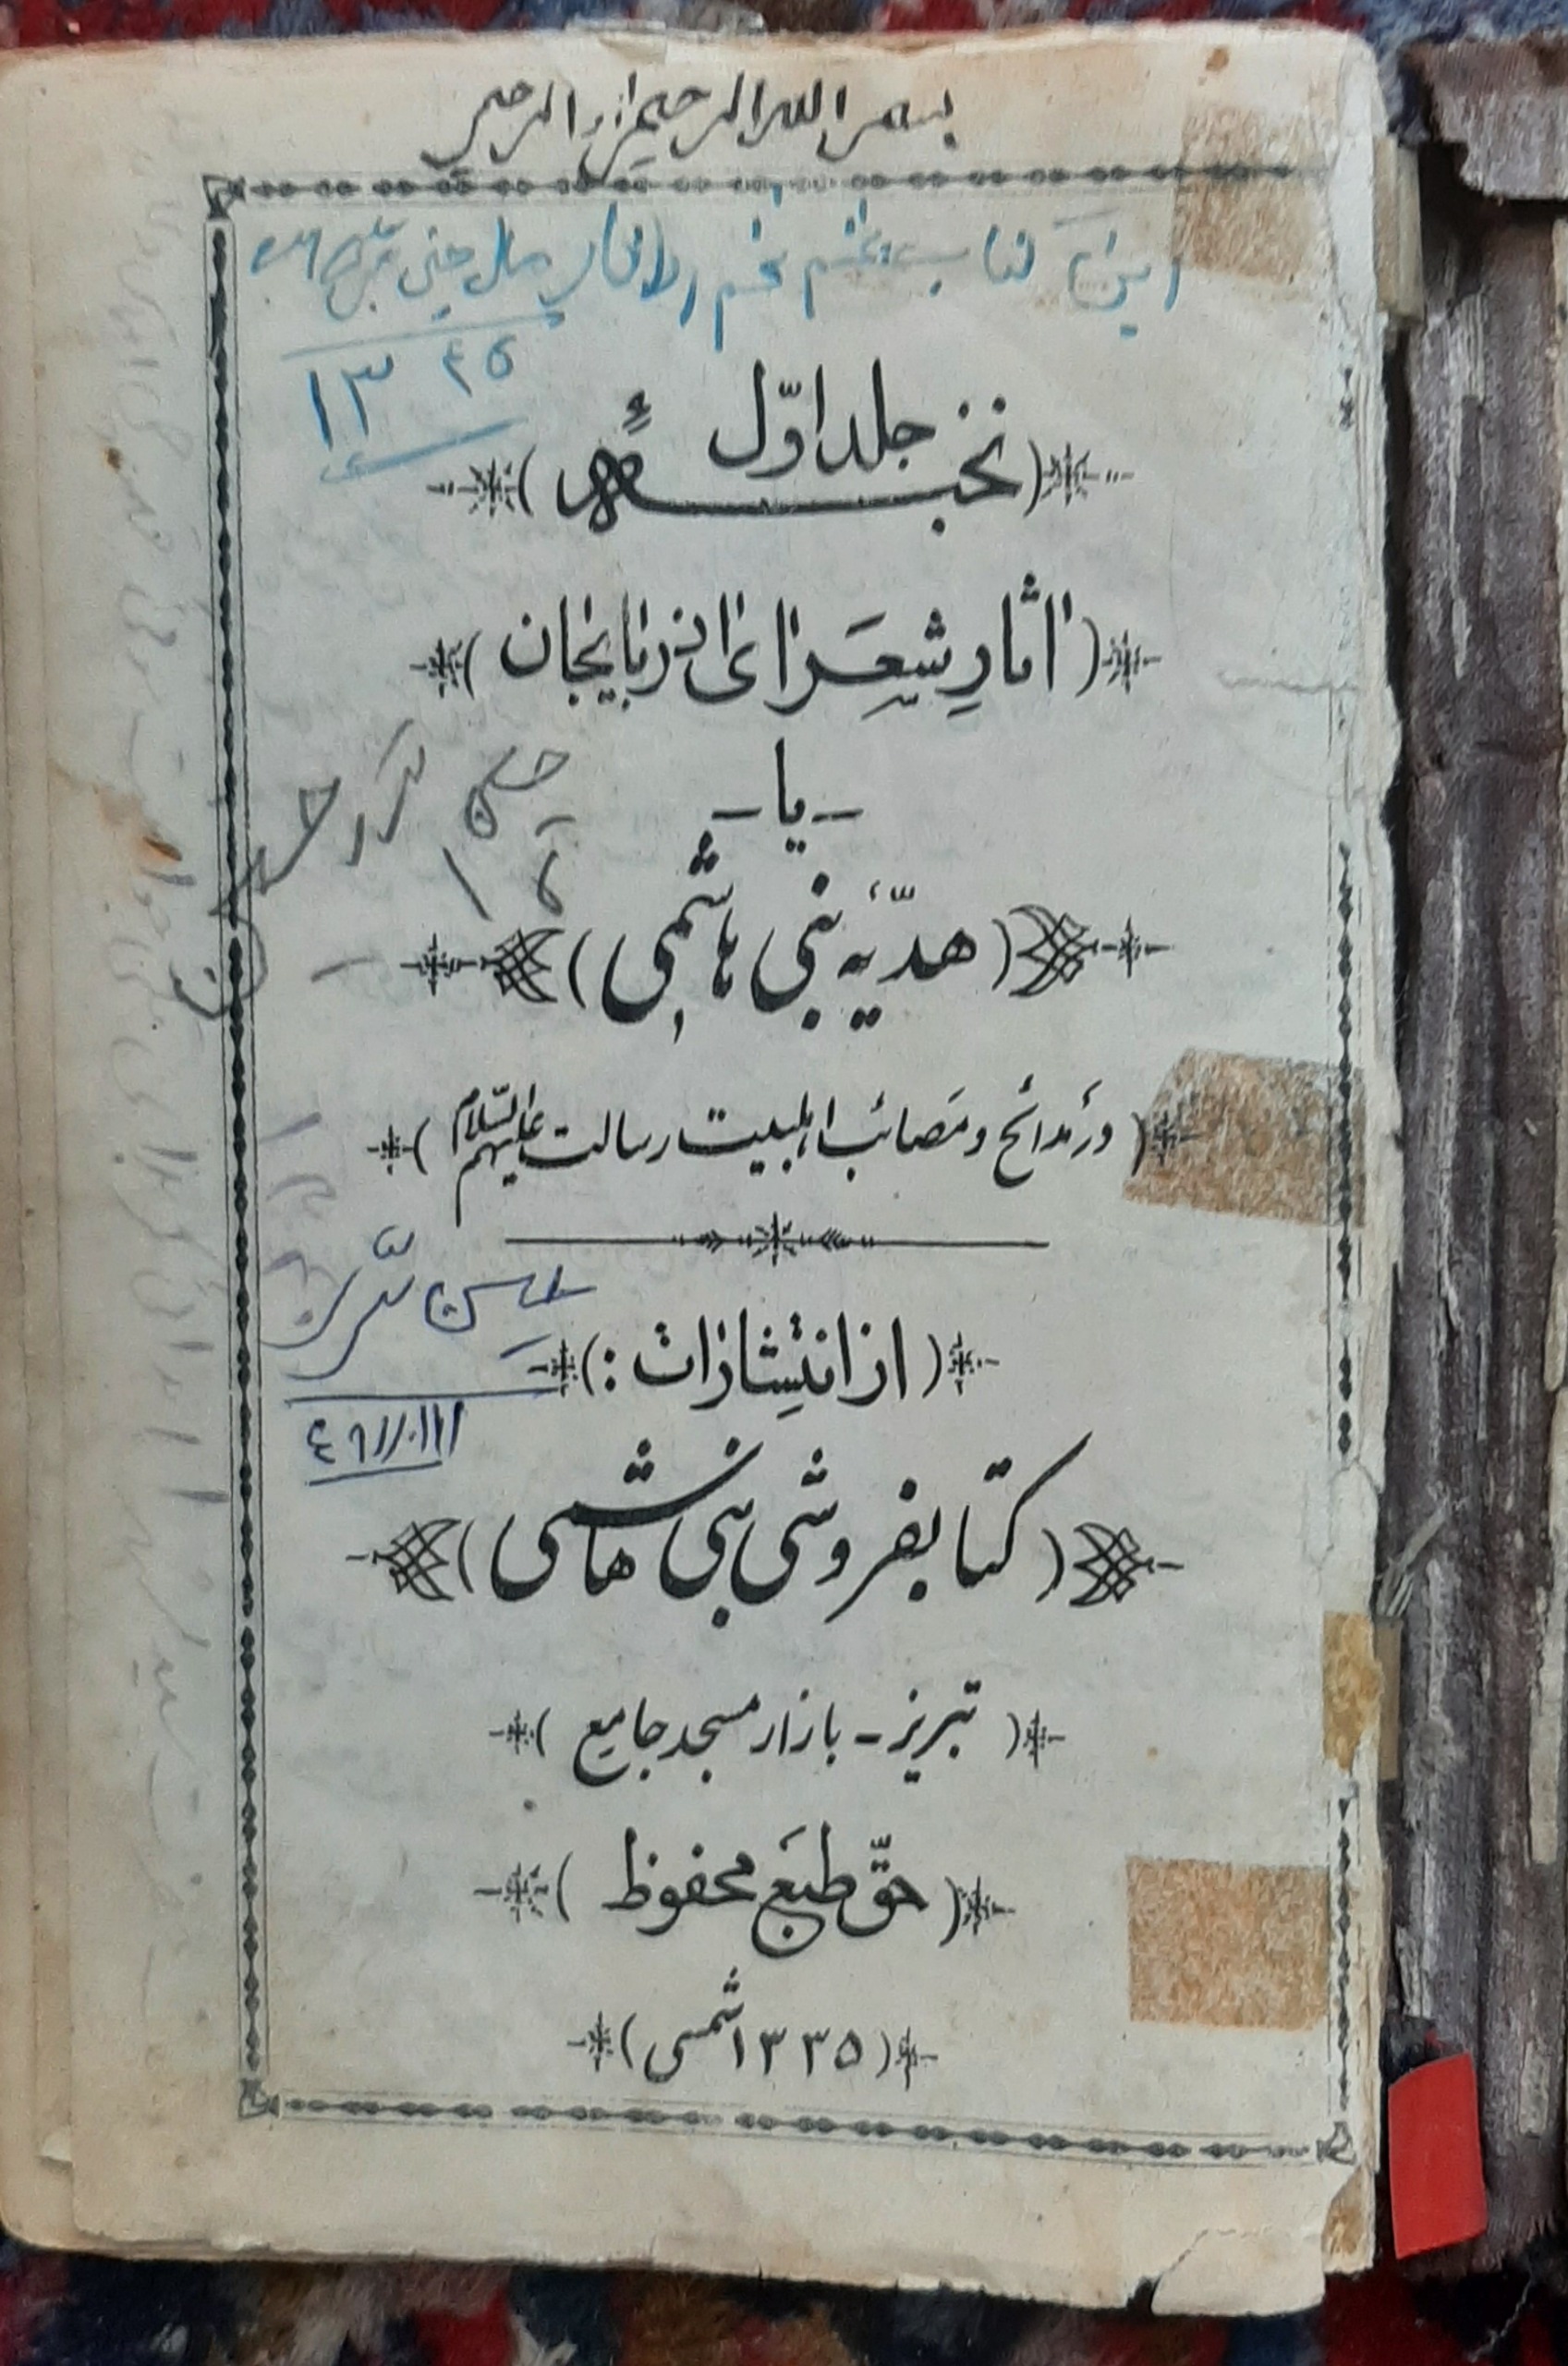 بسم الله الرحمن الرحیم
این کتاب
۱۳۴۵
جلد اوّل
(نخبهٔ)
(اثار شعرای اذربایجان)
-یا-
(هدّیهٔ بنی هاشمی)
(در مدائح و مصائب اهلبیت رسالت علیهم السّلام)
(از انتشارات:)
(کتابفروشی بنی هاشمی)
(تبریز - بازار مسجد جامع)
(حقّ طبع محفوظ)
(۱۳۳۵ شمسی)